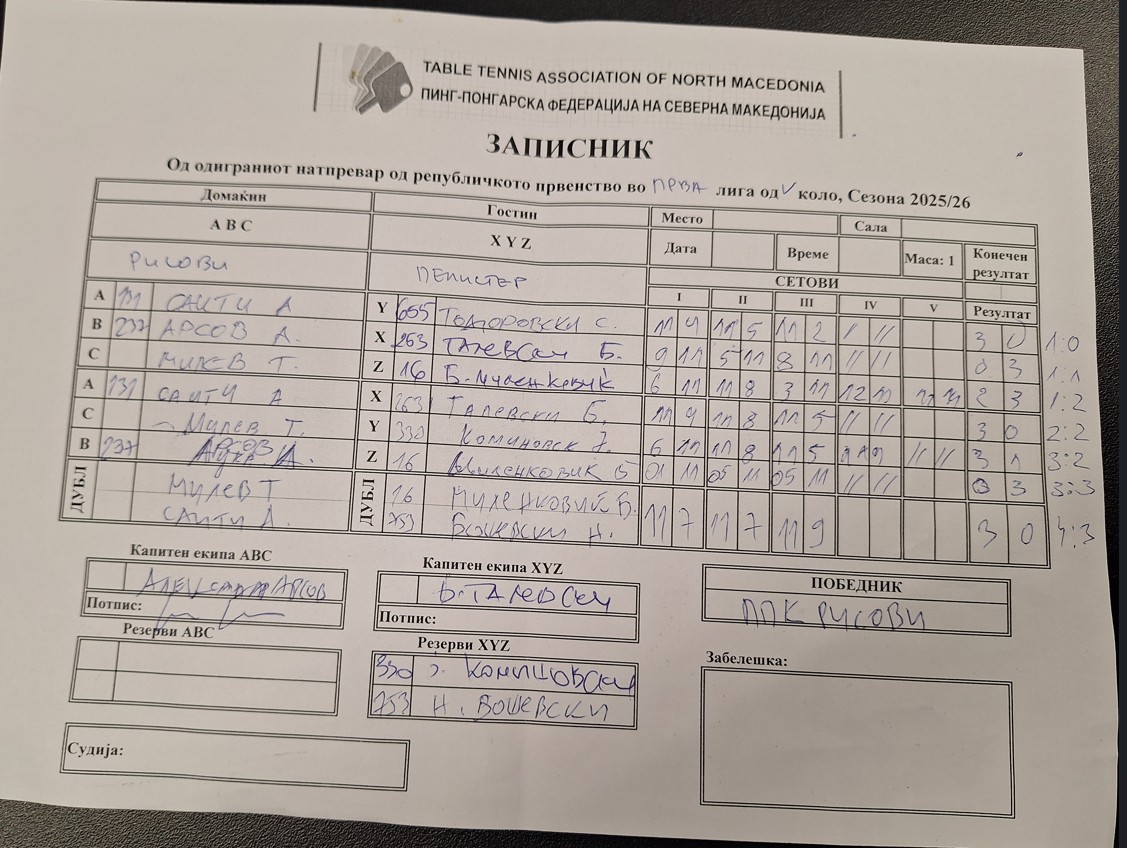 TABLE TENNIS ASSOCIATION OF NORTH MACEDONIA
ПИНГ-ПОНГАРСКА ФЕДЕРАЦИЈА НА СЕВЕРНА МАКЕДОНИЈА
ЗАПИСНИК
Од одиграниот натпревар од републичкото првенство во ПРВА лига од V коло, Сезона 2025/26
Домаќин Гостин Место Сала
А В С X Y Z Дата Време Маса: 1 Конечен резултат
РИСОВИ ПЕЛИСТЕР СЕТОВИ
I II III IV V Резултат
A 131 САИТИ А Y 655 ТОДОРОВСКИ С. 11 4 11 5 11 2 / // 3 0 1:0
B 237 АРСОВ А. X 263 ТАЛЕВСКИ Б. 9 11 5 11 8 11 // // 0 3 1:1
C МИЛЕВ Т. Z 16 Б. Миленковиќ 6 11 11 8 3 11 12 2 3 1:2
A 131 САИТИ А X 263 ТАЛЕВСКИ Б. 11 4 11 8 11 5 // // 3 0 2:2
C Милев Т. Y 330 6 11 11 8 11 5 11 9 // // 3 1 3:2
B 237 А. Z 16 Миленковик Б 01 11 05 11 05 11 // // 0 3 3:3
ДУБЛ МИЛЕВ Т ДУБЛ 16 МИЛЕНКОВИЙ Б. 11 7 11 7 11 9 3 0 4:3
САИТИ А. 753 БОШЕВСКИ Н.
Капитен екипа ABC Капитен екипа XYZ ПОБЕДНИК
АЛЕКСАНДАР АРСОВ Б. ТАЛЕВСКИ ППК РИСОВИ
Потпис: Потпис:
Резерви ABC Резерви XYZ Забелешка:
330
753 Н. БОШЕВСКИ
Судија: